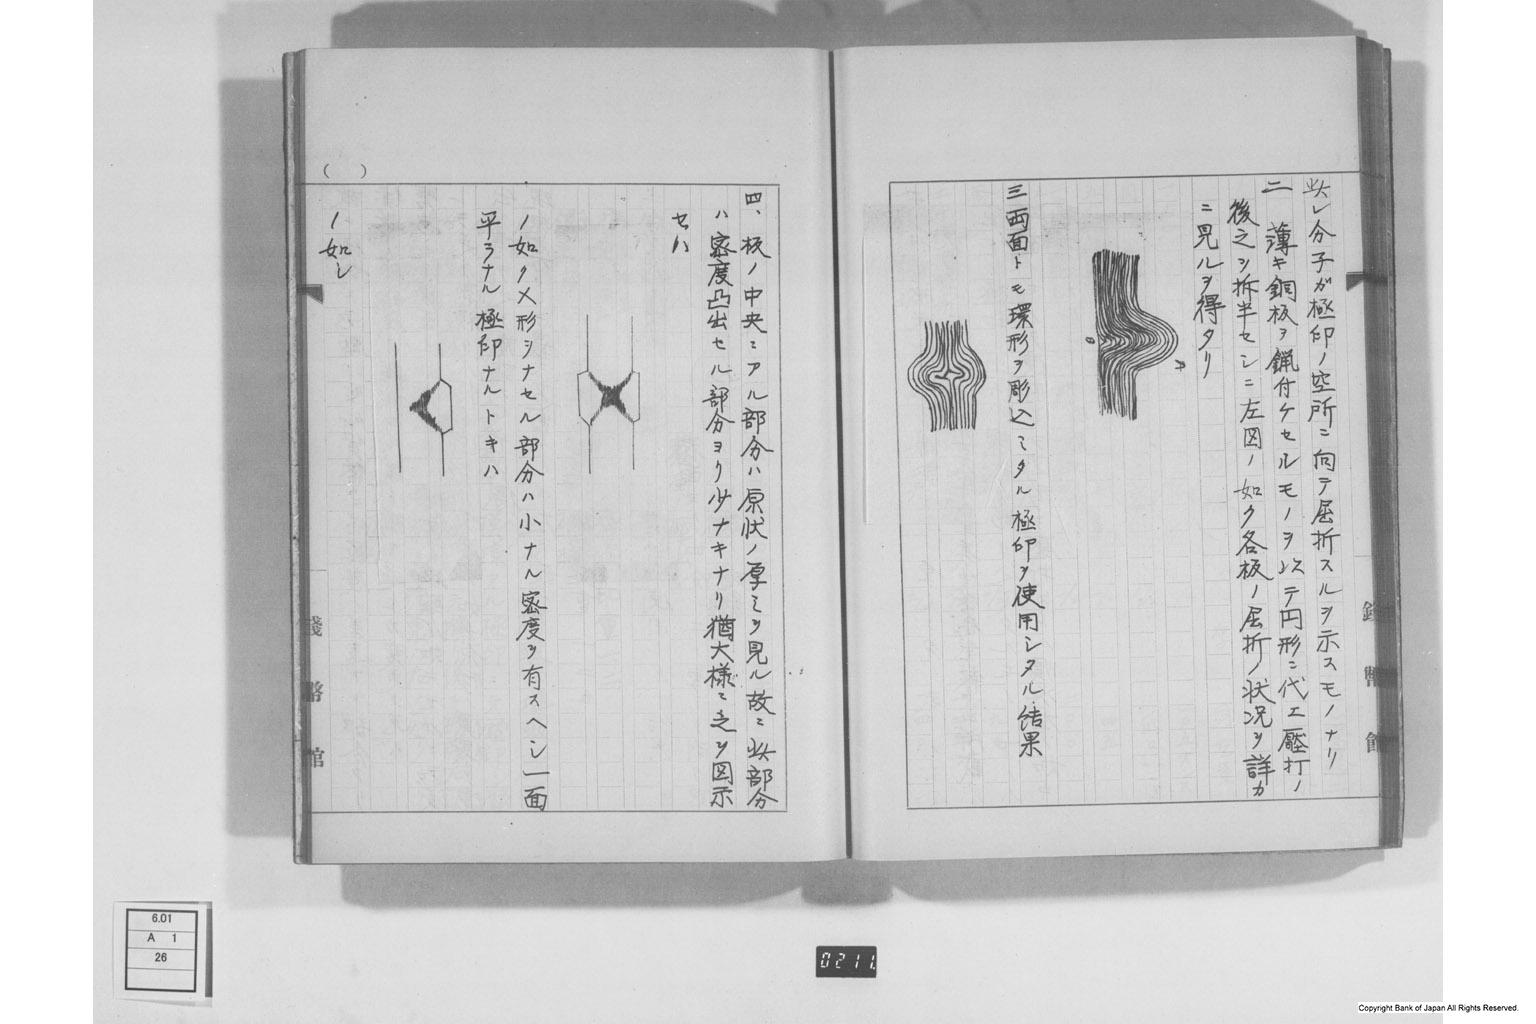 此レ分子ガ極印ノ空所ニ向テ屈折スルヲ示スモノナリ
二 薄キ銅板ヲ鑞付ケセルモノヲ以テ円形ニ代エ壓打ノ
後之ヲ折半セシニ左図ノ如ク各板ノ屈折ノ状況ヲ詳カ
ニ見ルヲ得タリ
三 両面トモ環形ヲ彫込ミタル極印ヲ使用シタル結果
四、板ノ中央ニアル部分ハ原状ノ厚ミヲ見ル故ニ此部分
ハ密度凸出セル部分ヨリ少ナキナリ猶大様ニ之ヲ図示
セハ
ノ如ク㐅形ヲナセル部分ハ小ナル密度ヲ有スヘシ一面
平ラナル極印ナルトキハ
ノ如シ
( )
銭幣館
銭幣館
6.01
A 1
26
0211.
Copyright Bank of Japan All Rights Reserved.